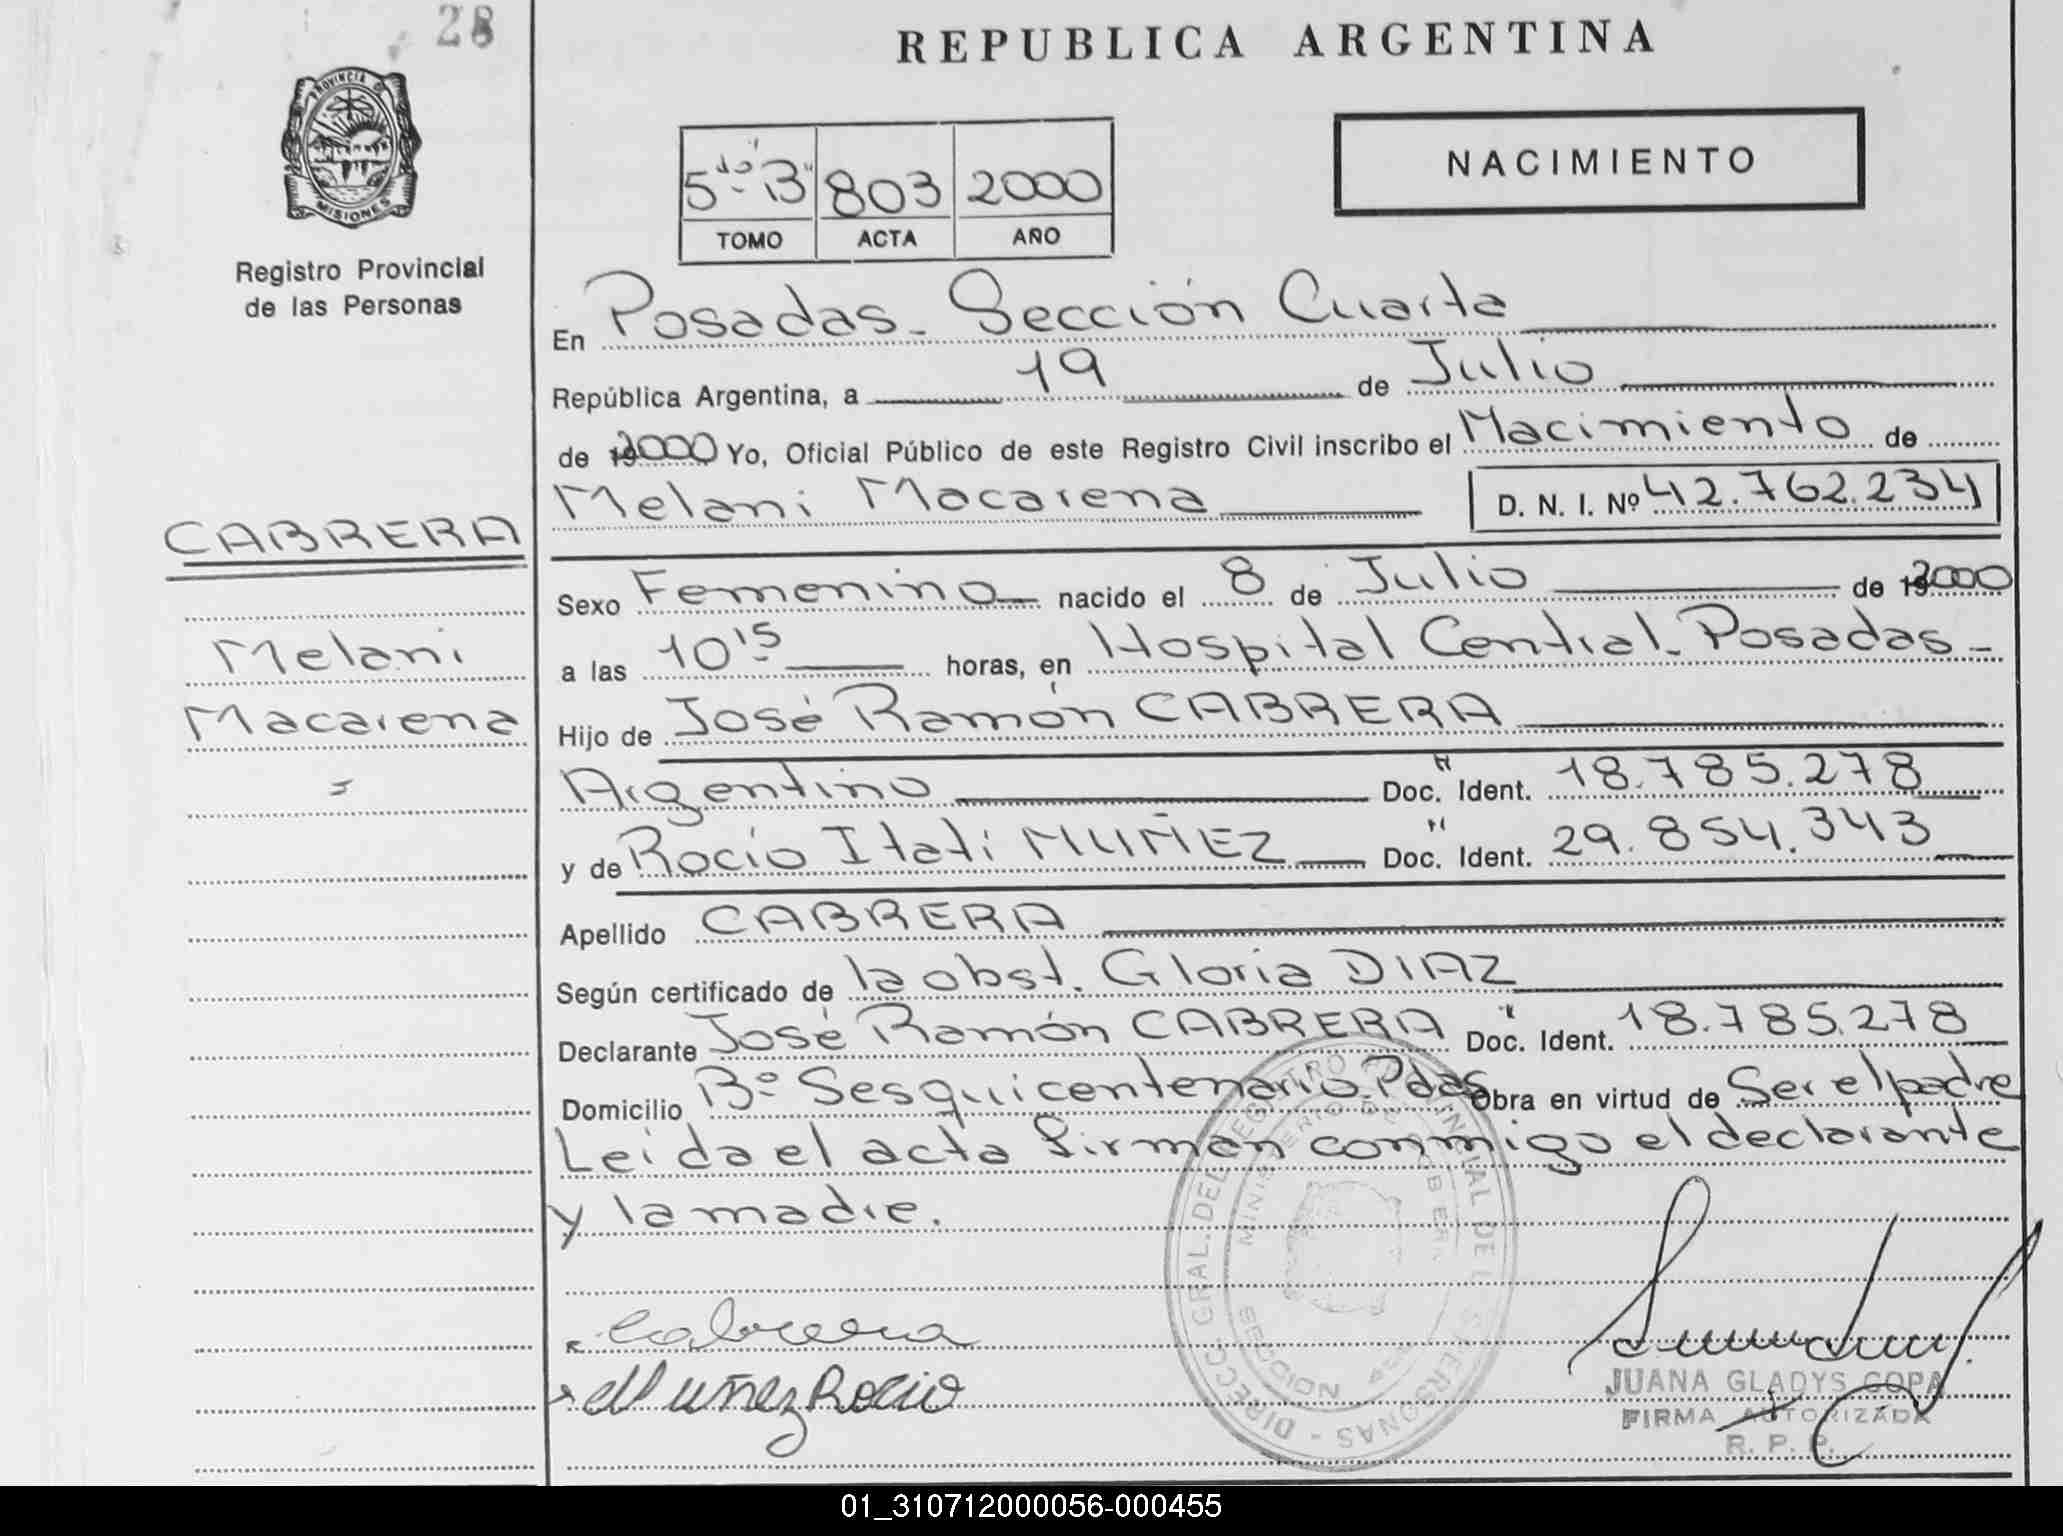 28
REPUBLICA ARGENTINA
PROVINCIA DE
MISIONES
Registro Provincial
de las Personas
5to "B" 803 2000
TOMO ACTA AÑO
NACIMIENTO
En Posadas - Sección Cuarta
República Argentina, a 19 de Julio
de 2000 Yo, Oficial Público de este Registro Civil inscribo el Nacimiento de
Melani Macarena D. N. I. Nº 42.762.234
CABRERA
Melani
Macarena
Sexo Femenino nacido el 8 de Julio de 2000
a las 10'15 horas, en Hospital Central - Posadas -
Hijo de José Ramón CABRERA
Argentino Doc. Ident. 18.785.278
y de Rocío Itatí MUÑEZ Doc. Ident. 29.854.343
Apellido CABRERA
Según certificado de la obst. Gloria DIAZ
Declarante José Ramón CABRERA Doc. Ident. 18.785.278
Domicilio Bº Sesquicentenario. Pdas Obra en virtud de Ser el padre
Leída el acta firman conmigo el declarante
y la madre.
Cabrera
Muñez Rocio
DIRECC. GRAL. DEL REGISTRO PROVINCIAL DE LAS PERSONAS
MINISTERIO DE GOBIERNO
SECCION 4ta
JUANA GLADYS COPA
FIRMA AUTORIZADA
R. P. P.
01_310712000056-000455